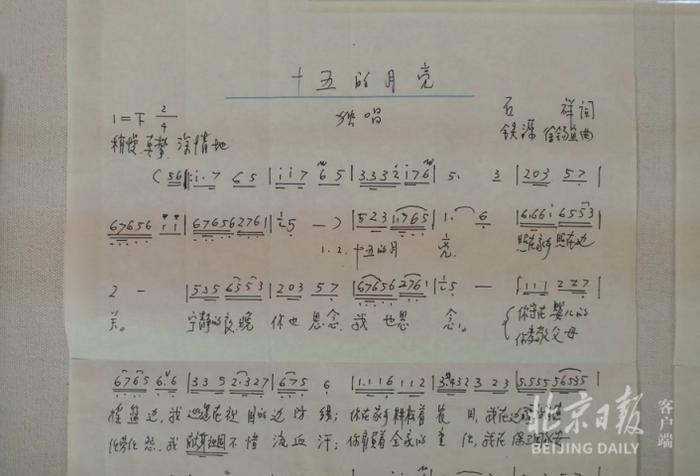 十五的月亮
1=F 2/4
独唱
石祥词
铁源 徐锡宜曲
稍慢 真挚 深情地
(56 | i·7 65 | i i 7 65 | 3.332 i 7 6 | 5. 3 | 203 57 |
67656 i i | 67656 2761 | 5 — ) | 523 1.765 | 1. 6 | 6.66i 6553 |
1.2.十五的月 亮 照在家乡照在边
2 — | 535 6553 | 203 57 | 67656 2761 | 5 — | 111 227 |
关。 宁静的夜晚 你也思念,我也思 念。 你守在婴儿的
你孝敬父母
6765 6.6 | 335 2.327 | 675 6 | 1.116 112 | 3432 3 23 | 5.555 56535 |
摇篮边,我巡逻在祖国的边防线;你在家乡耕耘着农田,我在边疆
任劳任怨,我 祖国不惜流血汗;你肩负着全家的重任,我在
北京日报
客户端
BEIJING DAILY